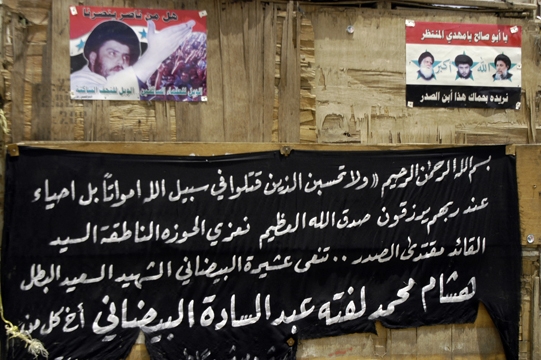 هل من ناصر ينصرنا
يا أبو صالح يا مهدي المنتظر
الله اكبر
نريده بحماك هذا أبن الصدر
بسم الله الرحمن الرحيم ((ولا تحسبن الذين قتلوا في سبيل الله امواتاً بل احياء
عند ربهم يرزقون صدق الله العظيم نعزي الحوزه الناطقة السيد
القائد مقتدى الصدر .. تنعى عشيرة البيضاني الشهيد السعيد البطل
هشام محمد لفته عبد السادة البيضاني أخ كل من